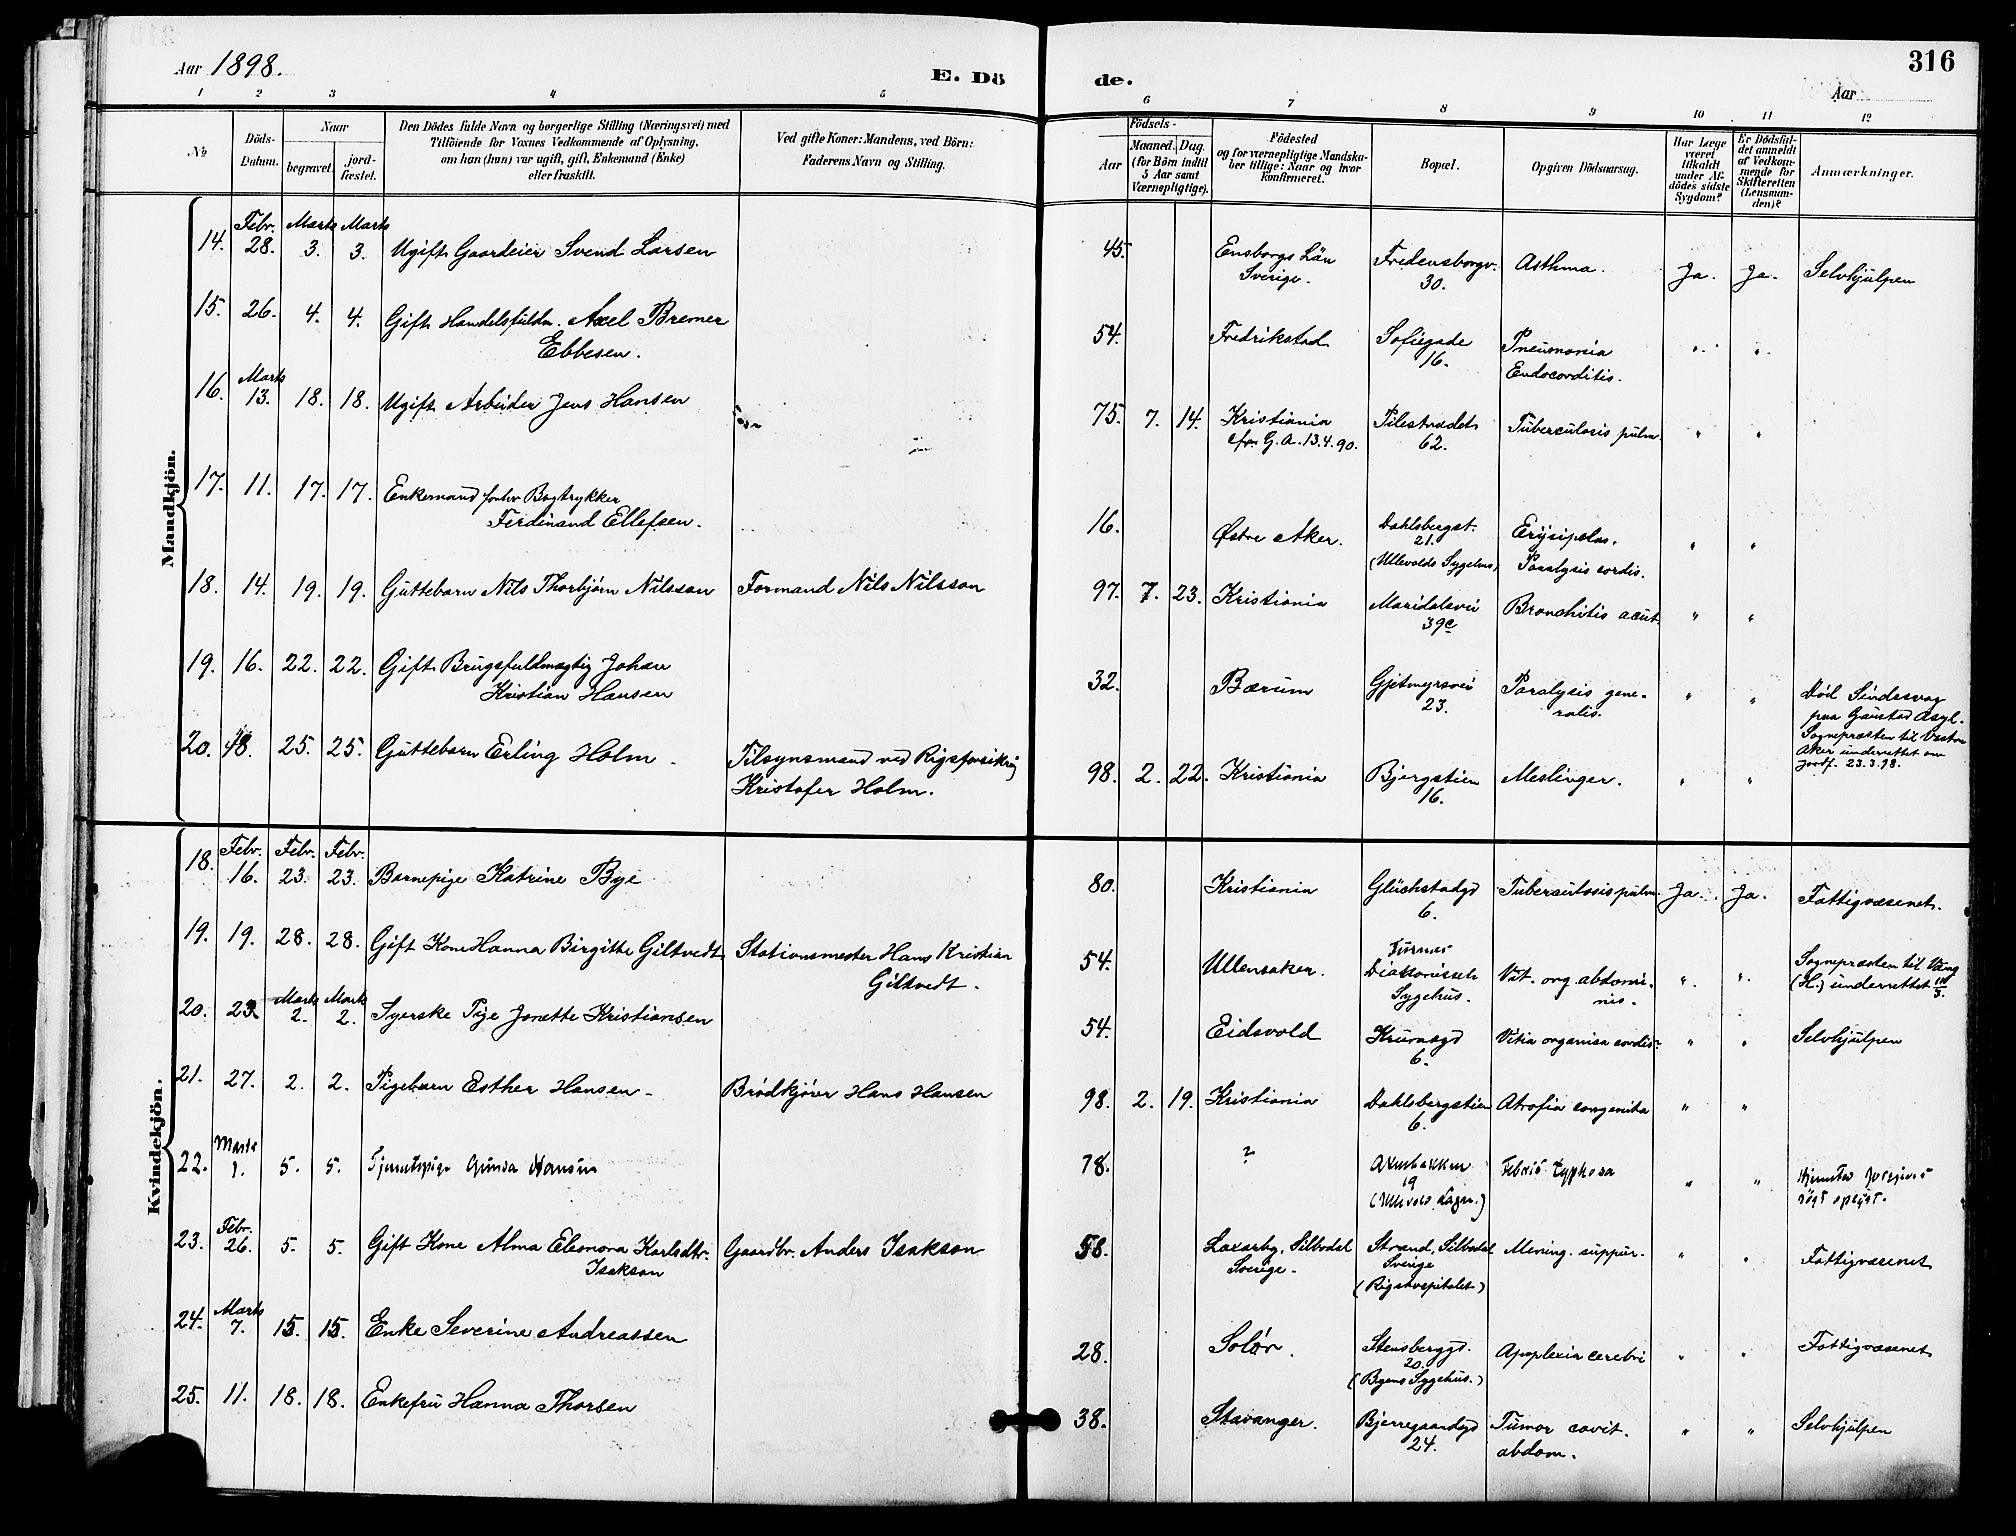 Aar 1898.
E. Dö
de.
316
Aar
1 2 3 4 5 6 7 8 9 10 11 12
No
Döds-Datum.
Naar
begravet.
jord-fæstet.
Den Dödes fulde Navn og borgerlige Stilling (Næringsvei) med
Tilföiende for Voxnes Vedkommende af Oplysning,
om han (hun) var ugift, gift, Enkemand (Enke)
eller fraskilt.
Ved gifte Koner: Mandens, ved Börn:
Faderens Navn og Stilling.
Födsels-
Aar
Maaned. Dag.
(for Börn indtil
5 Aar samt
Værnepligtige).
Födested
og for værnepligtige Mandska-
ber tillige: Naar og hvor
konfirmeret.
Bopæl.
Opgiven Dödsaarsag.
Har Læge
været
tilkaldt
under Af-
dödes sidste
Sygdom?
Er Dödsfal-
det anmeldt
af Vedkom-
mende for
Skifteretten
(Lensman-
den)?
Anmærkninger.
Mandkjön.
14. Febr. 28. Marts 3. Marts 3. Ugift Gaardeier Svend Larsen 45. Ensborgs Län Sverige. Fredensborgv. 30. Asthma. Ja. Ja. Selvhjulpen
15. 26. 4. 4. Gift Handelsfuldm. Axel Bremer
Ebbesen. 54. Fredrikstad Sofiegade 16. Pneumonia Endocorditis. " "
16. Marts 13. 18. 18. Ugift Arbeider Jens Hansen 75. 7. 14. Kristiania cfr. G. A. 13.4.90. Pilestrædet 62. Tuberculosis pulm. " "
17. 11. 17. 17. Enkemand forhv Bogtrykker
Ferdinand Ellefsen. 16. Østre Aker. Dahlsbergst. 21. (Ullevolds Sygehus) Erysipelas. Paralysis cordis. " "
18. 14. 19. 19. Guttebarn Nils Thorbjørn Nilsson Formand Nils Nilsson 97. 7. 23. Kristiania Maridalsvei 39c Bronchitis acut. " "
19. 16. 22. 22. Gift Brugsfuldmægtig Johan
Kristian Hansen 32. Bærum Gjetmyrsvei 23. Paralysis gene-
ralis. " " Död Sindssvag
paa Gaustad Asyl.
Sognepræsten til Vestre
Aker underrettet om
Jordf. 23.3.98.
20. 18. 25. 25. Guttebarn Erling Holm Tilsynsmand ved Rigsforsikring
Kristofer Holm. 98. 2. 22. Kristiania Bjergstien 16. Meslinger. " "
Kvindekjön.
18. Febr. 16. Febr. 23. Febr. 23. Barnepige Katrine Bye 80. Kristiania Glückstadgd 6. Tuberculosis pulm. Ja. Ja. Fattigvæsenet.
19. 19. 28. 28. Gift Kone Hanna Birgitte Giltvedt Stationsmester Hans Kristian
Giltvedt. 54. Ullensaker. Diakonisseh Sygehus. Vit. org. abdomi-
nis. " " Sognepræsten til Vang
(H.) underrettet
20. 23. Marts 2. Marts 2. Syerske Pige Janette Kristiansen 54. Eidsvold Krumsgd 6. Vitia organica cordis " " Selvhjulpen
21. 27. 2. 2. Pigebarn Esther Hansen Brödkjører Hans Hansen 98. 2. 19. Kristiania Dahlsbergstien 6. Atrofia congenita " "
22. Marts 1. 5. 5. Tjenestepige Gunda Hansen 78. ? Akersbakken 19 Febris typhosa " "
23. Febr. 26. 5. 5. Gift Kone Alma Eleonora Karlsdtr.
Isakson Gaardbr. Anders Isakson 58. Laxarby, Silbodal Sverige. Strand, Silbodal Sverige (Rigshospitalet) Mening. suppur. " " Fattigvæsenet
24. Marts 7. 15. 15. Enke Severine Andreassen 28. Solör. Stensberggd. 20. (Byens Sygehus.) Apoplexia cerebri " " Fattigvæsenet
25. 11. 18. 18. Enkefru Hanna Thorsen 38. Stavanger. Bjerregaardsgd 24. Tumor cavit.
abdom. " " Selvhjulpen